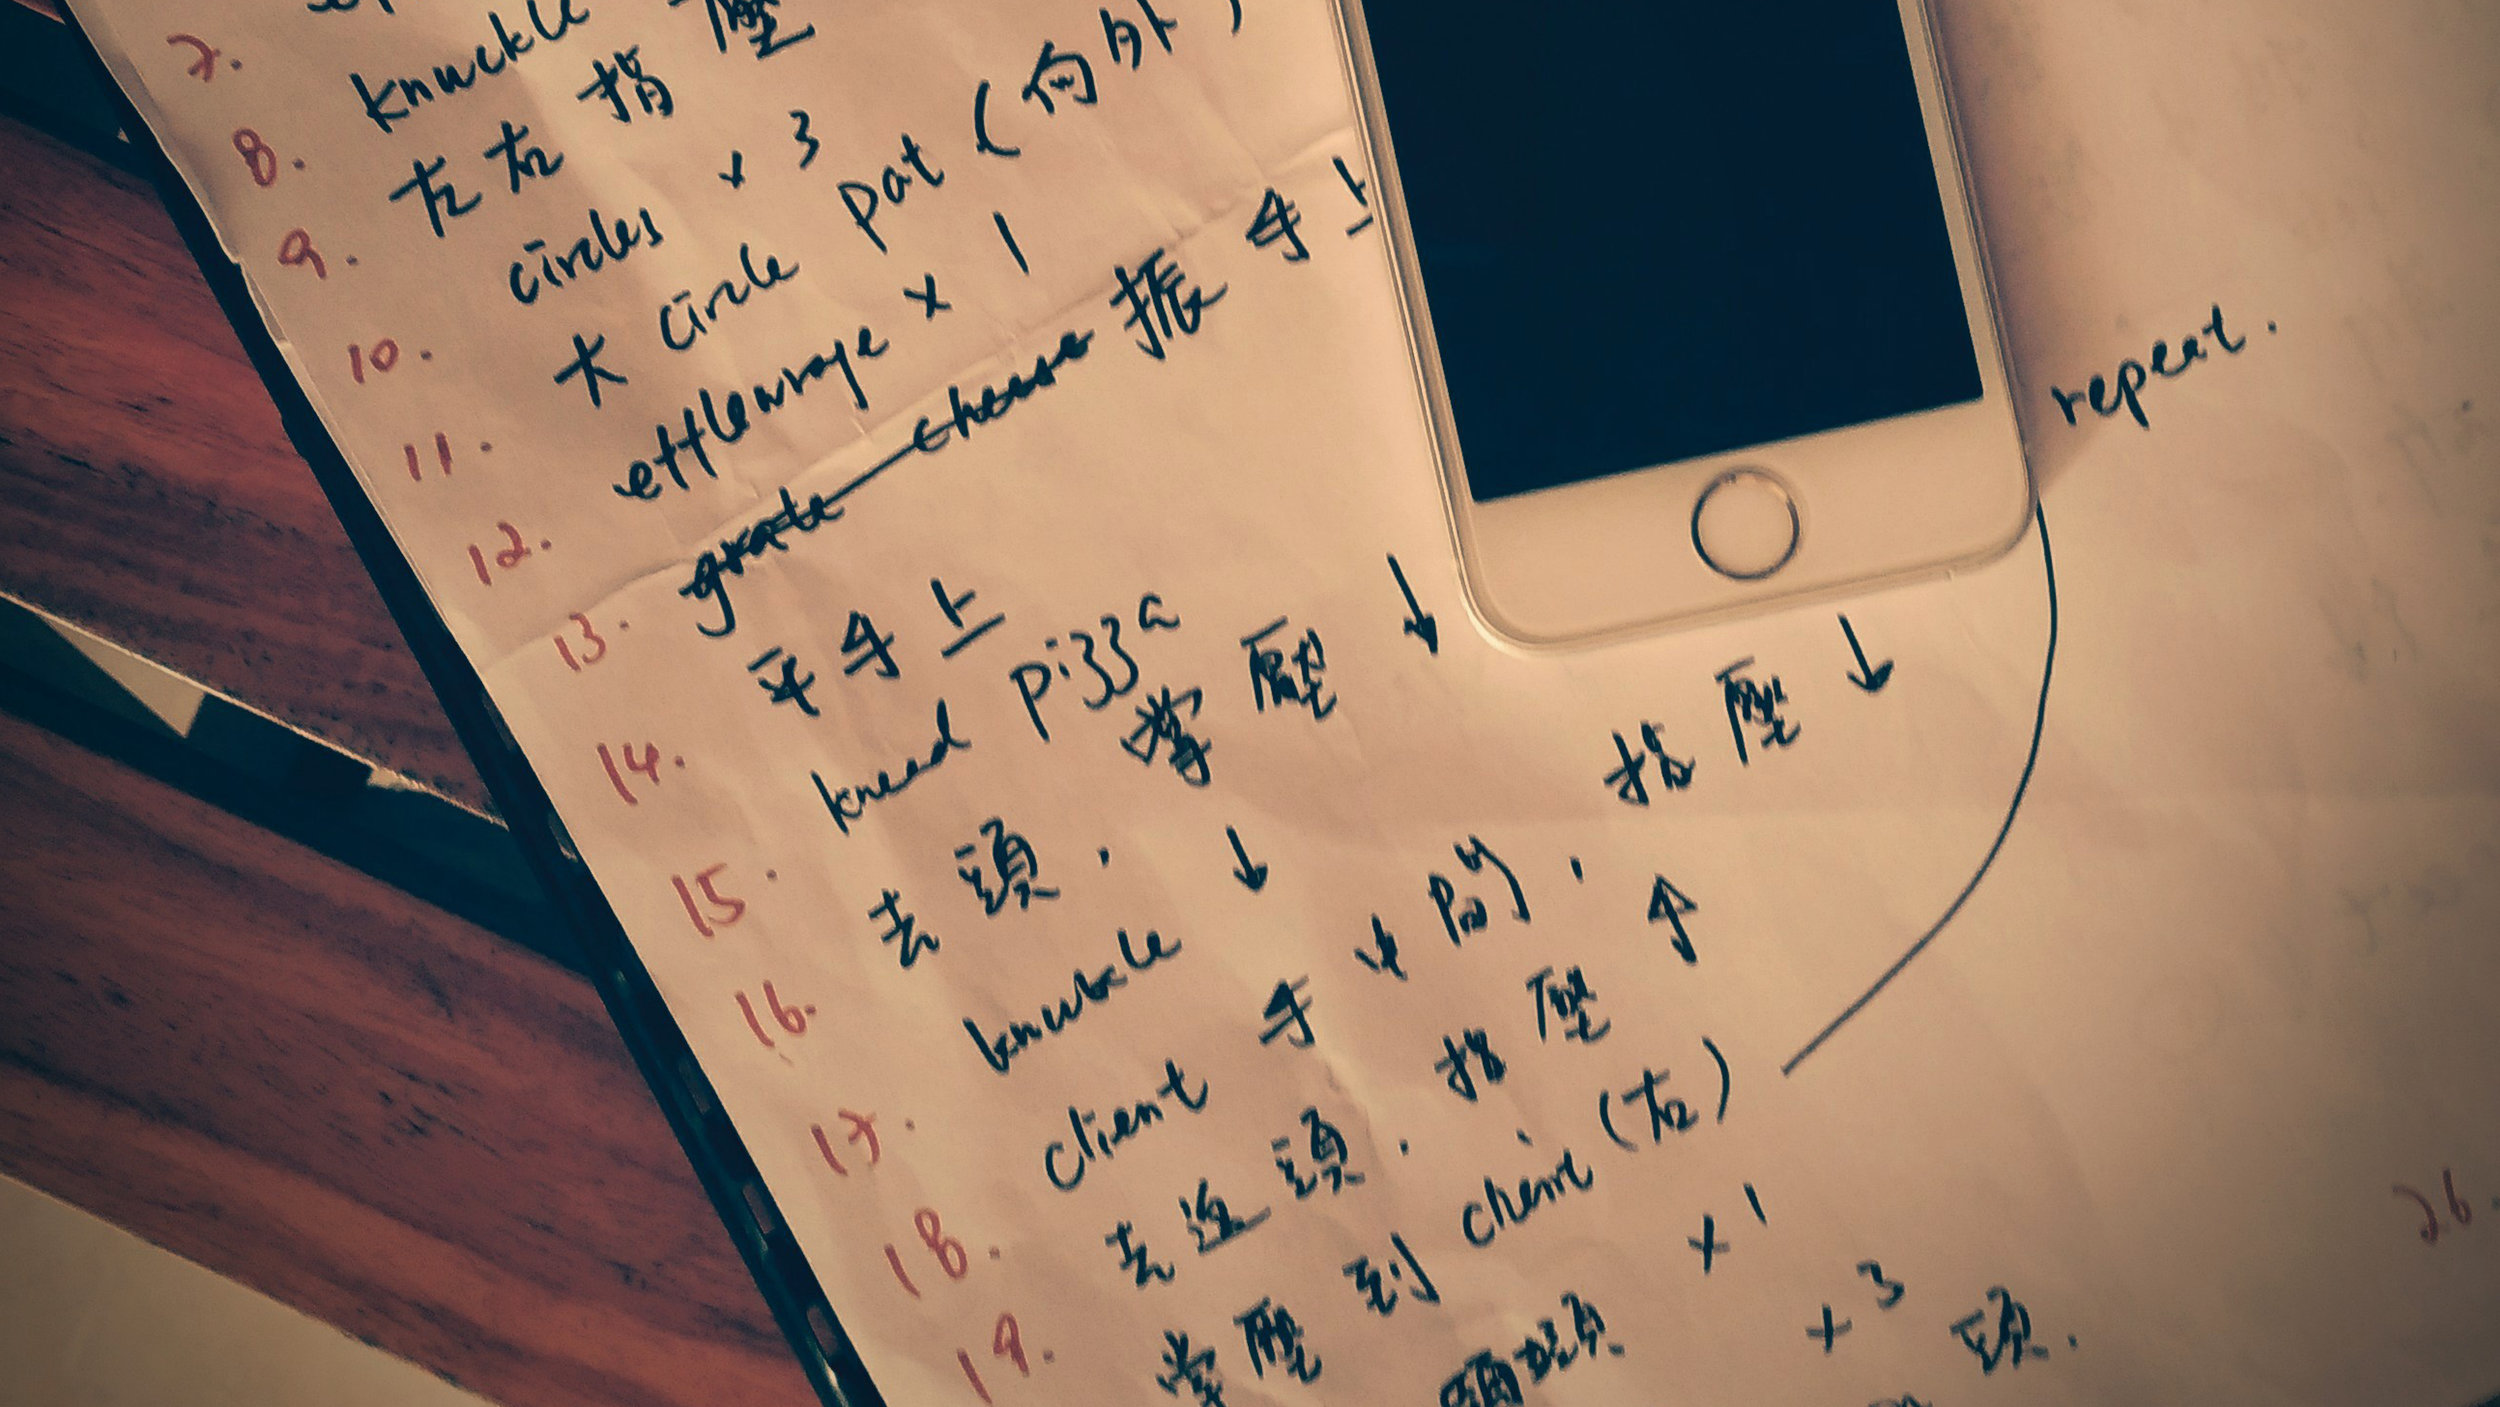 7. knuckle
8. 左右指壓
9. circles x 3
10. 大 circle pat (向外)
11. effleurage x 1
12. grate cheese 振手上
13. 平手上
14. knead pizza
15. 去頭. 掌壓 ↓
16. knuckle ↓
17. client 手中間. 指壓 ↓
18. 去邊頭. 指壓 ↑
19. 掌壓到 client (右)
repeat.
x 1
x 3
頭.
26.